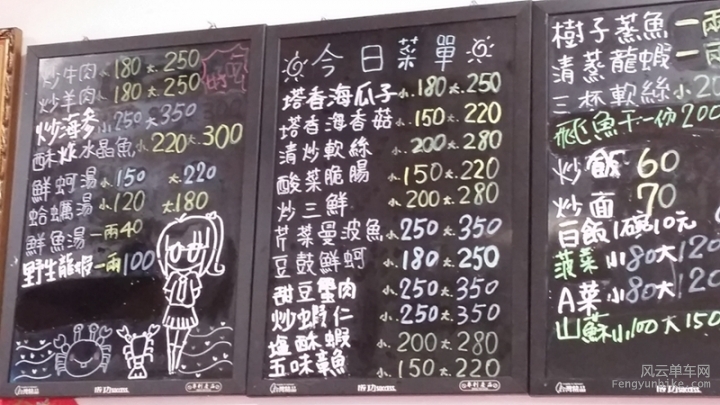 炒牛肉 小180 大.250
炒羊肉 小180 大.250
炒海參 小250 大350
酥炸水晶魚 小220 大300
鮮蚵湯 小.150 大.220
蛤蠣湯 小.120 大.180
鮮魚湯 一兩40
野生龍蝦 一兩100
今日菜單
塔香海瓜子 小.180 大.250
塔香海香菇 小.150 大.220
清炒軟絲 小.200 大.280
酸菜脆腸 小.150 大.220
炒三鮮 小.200 大.280
芹菜曼波魚 小.250 大.350
豆豉鮮蚵 小.180 大.250
甜豆蟹肉 小.250 大.350
炒蝦仁 小.250 大.350
鹽酥蝦 小.200 大.280
五味章魚 小.150 大.220
樹子蒸魚 一兩
清蒸龍蝦 一兩
三杯軟絲 小2
飛魚干一份200
炒飯 60
炒面 70
白飯1碗10元
菠菜 小80大120
A菜 小80大120
山蘇小100大150
风云单车网
Fengyunbike.com